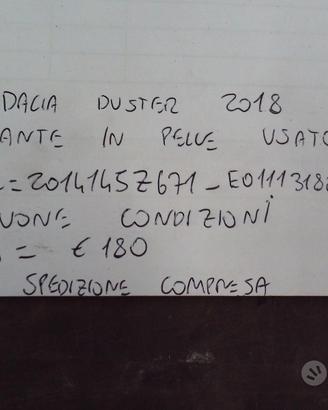 DACIA DUSTER 2018
ANTE IN PELLE USATO
=201414 5Z671-E0111318
UONE CONDIZIONI
= € 180
SPEDIZIONE COMPRESA